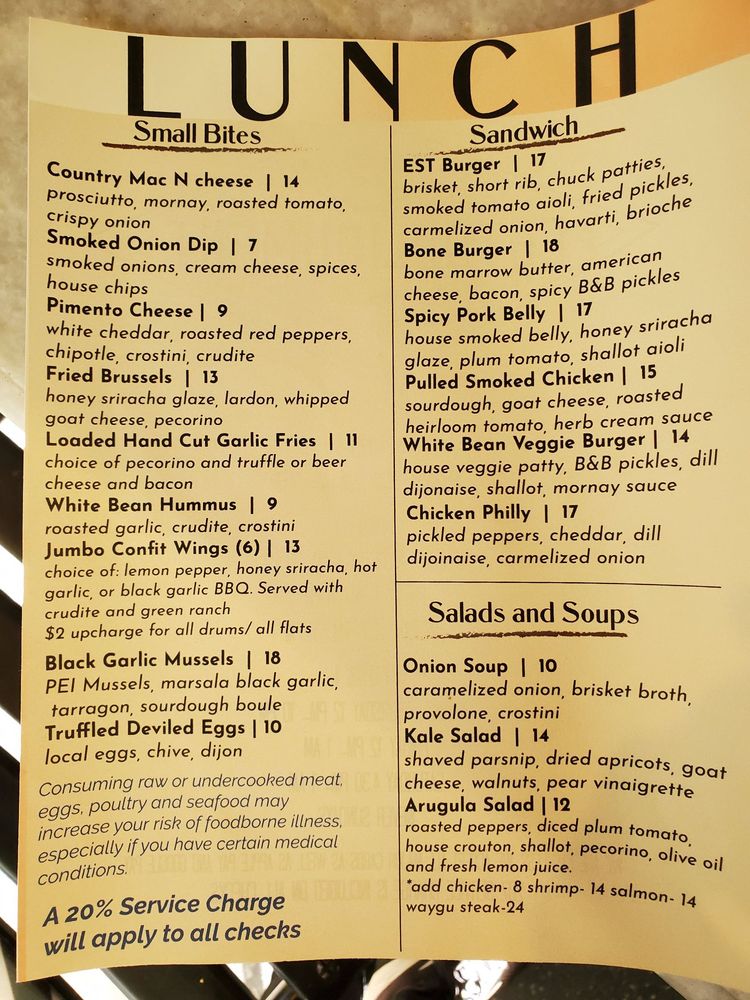 LUNCH
Small Bites
Country Mac N cheese | 14
prosciutto, mornay, roasted tomato,
crispy onion
Smoked Onion Dip | 7
smoked onions, cream cheese, spices,
house chips
Pimento Cheese | 9
white cheddar, roasted red peppers,
chipotle, crostini, crudite
Fried Brussels | 13
honey sriracha glaze, lardon, whipped
goat cheese, pecorino
Loaded Hand Cut Garlic Fries | 11
choice of pecorino and truffle or beer
cheese and bacon
White Bean Hummus | 9
roasted garlic, crudite, crostini
Jumbo Confit Wings (6) | 13
choice of: lemon pepper, honey sriracha, hot
garlic, or black garlic BBQ. Served with
crudite and green ranch
$2 upcharge for all drums/ all flats
Black Garlic Mussels | 18
PEI Mussels, marsala black garlic,
tarragon, sourdough boule
Truffled Deviled Eggs | 10
local eggs, chive, dijon
Consuming raw or undercooked meat,
eggs, poultry and seafood may
increase your risk of foodborne illness,
especially if you have certain medical
conditions.
A 20% Service Charge
will apply to all checks
Sandwich
EST Burger | 17
brisket, short rib, chuck patties,
smoked tomato aioli, fried pickles,
carmelized onion, havarti, brioche
Bone Burger | 18
bone marrow butter, american
cheese, bacon, spicy B&B pickles
Spicy Pork Belly | 17
house smoked belly, honey sriracha
glaze, plum tomato, shallot aioli
Pulled Smoked Chicken | 15
sourdough, goat cheese, roasted
heirloom tomato, herb cream sauce
White Bean Veggie Burger | 14
house veggie patty, B&B pickles, dill
dijonaise, shallot, mornay sauce
Chicken Philly | 17
pickled peppers, cheddar, dill
dijoinaise, carmelized onion
Salads and Soups
Onion Soup | 10
caramelized onion, brisket broth,
provolone, crostini
Kale Salad | 14
shaved parsnip, dried apricots, goat
cheese, walnuts, pear vinaigrette
Arugula Salad | 12
roasted peppers, diced plum tomato,
house crouton, shallot, pecorino, olive oil
and fresh lemon juice.
*add chicken- 8 shrimp- 14 salmon- 14
waygu steak-24